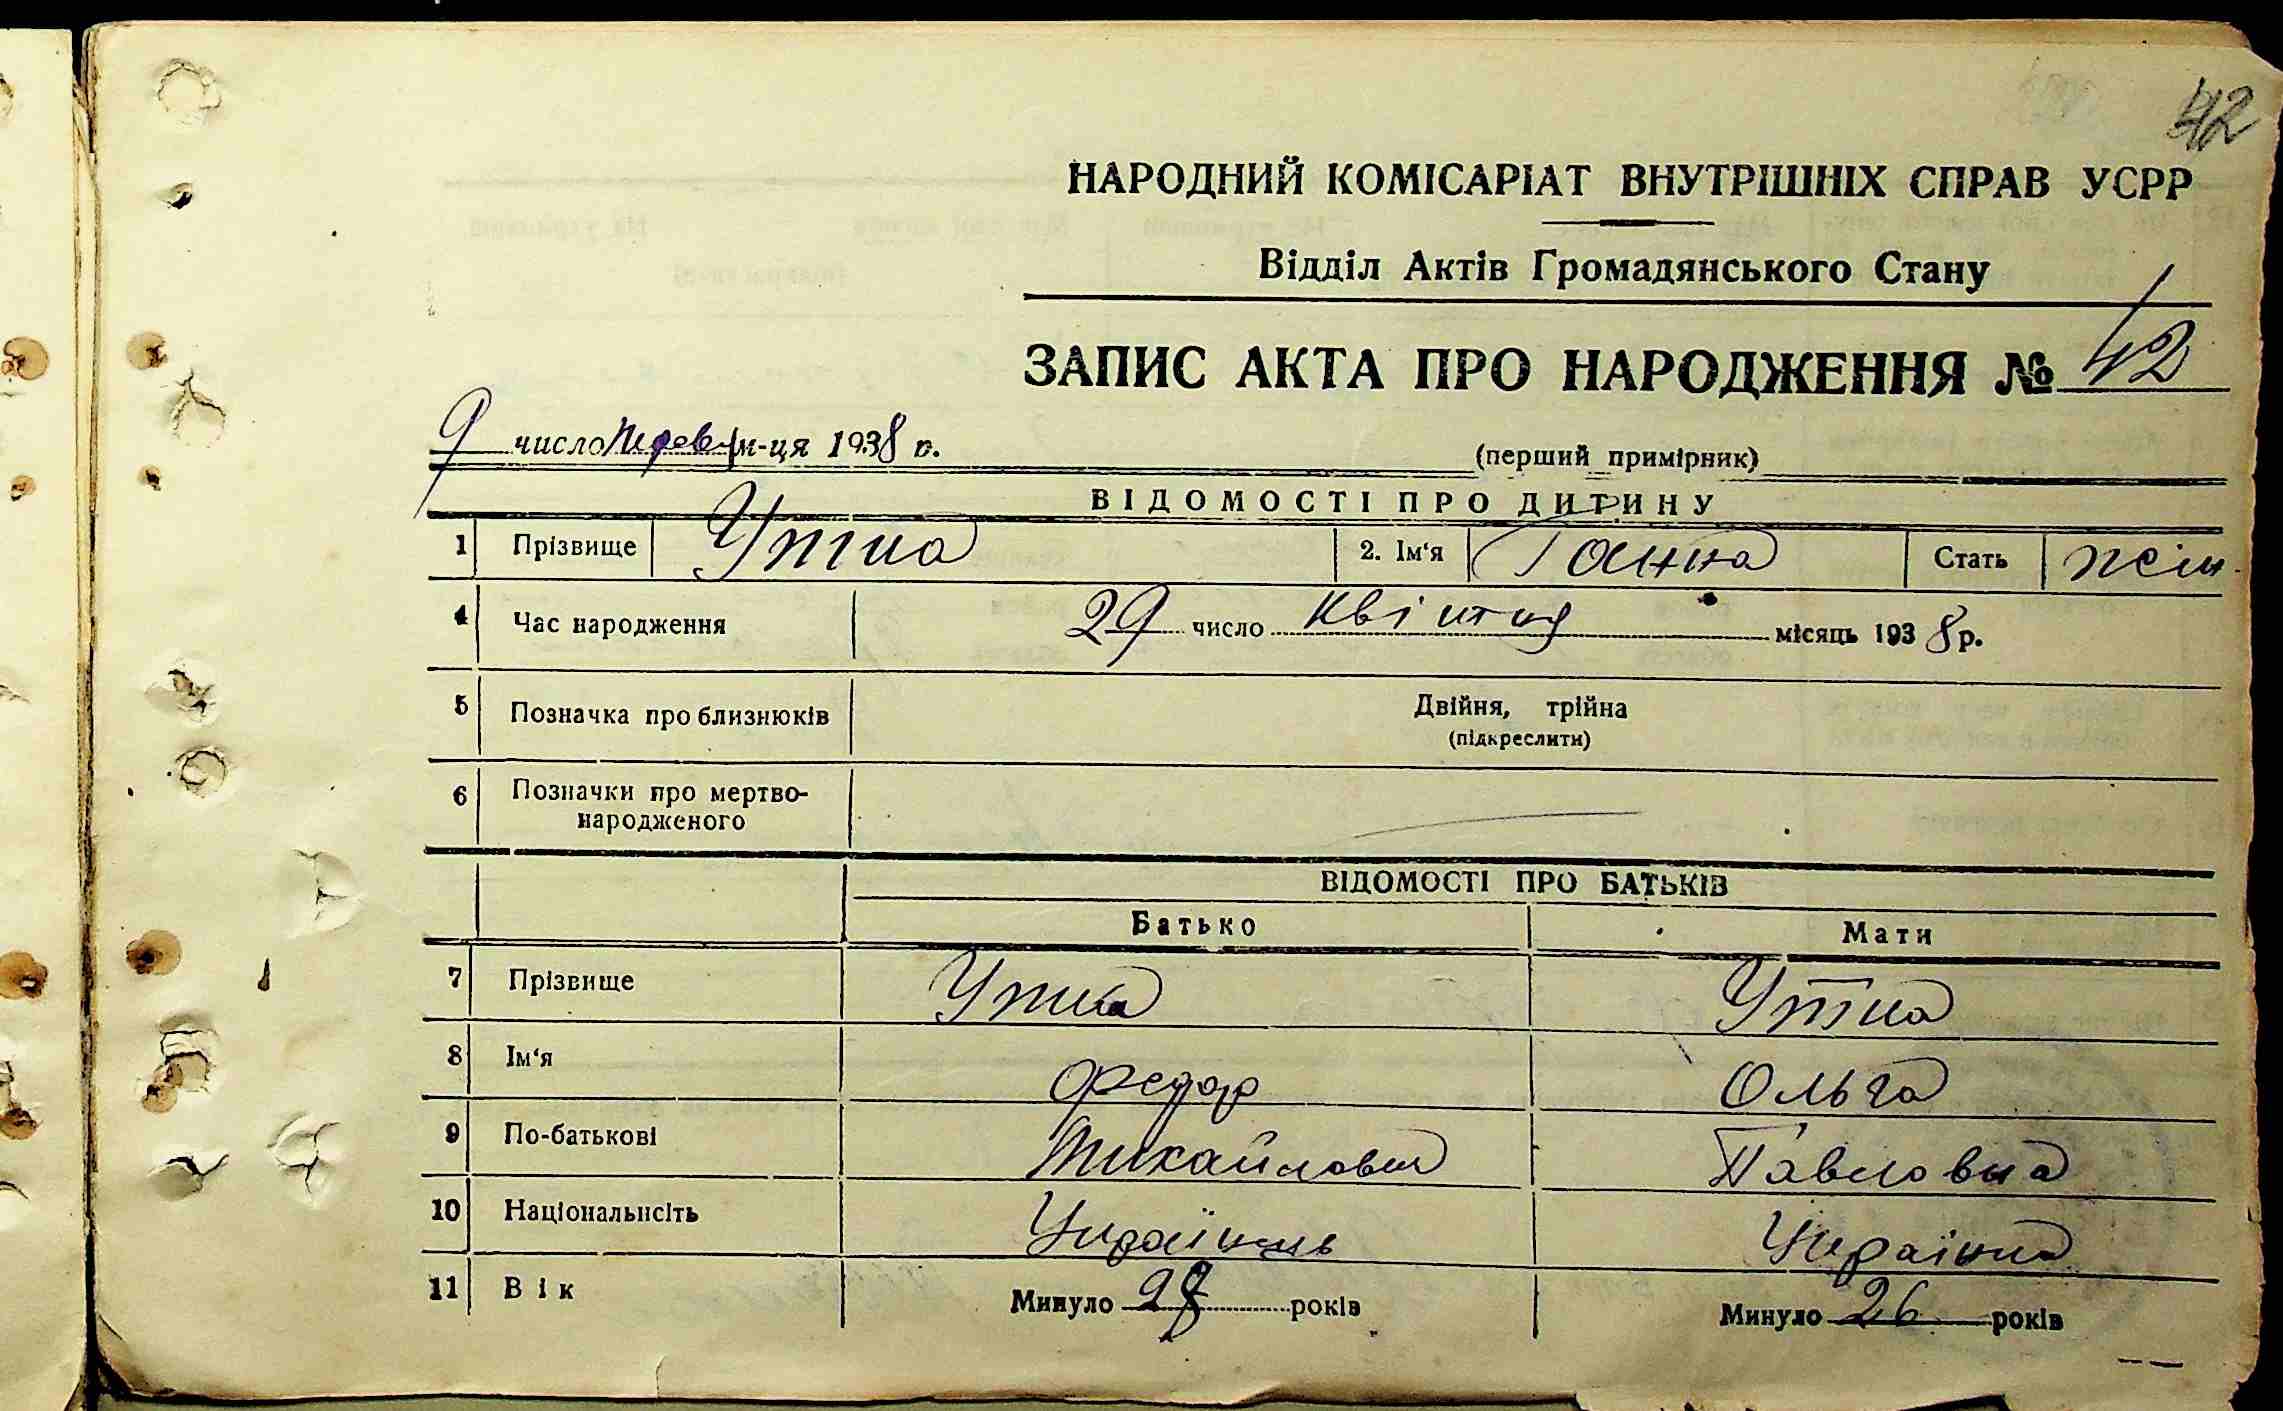 42
НАРОДНИЙ КОМІСАРІАТ ВНУТРІШНІХ СПРАВ УСРР
Відділ Актів Громадянського Стану
ЗАПИС АКТА ПРО НАРОДЖЕННЯ № 42
9 число м-ця 1938 р.
(перший примірник)
ВІДОМОСТІ ПРО ДИТИНУ
1 Прізвище Утка 2. Ім‘я Ганна Стать жін
4 Час народження 29 число Квітня місяць 1938 р.
5 Позначка про близнюків Двійня, трійна
(підкреслити)
6 Позначки про мертво-
народженого
ВІДОМОСТІ ПРО БАТЬКІВ
Батько Мати
7 Прізвище Утка Утка
8 Ім‘я Федор Ольга
9 По-батькові Михайлович Павловна
10 Національність Українець Українка
11 Вік Минуло 28 років Минуло 26 років